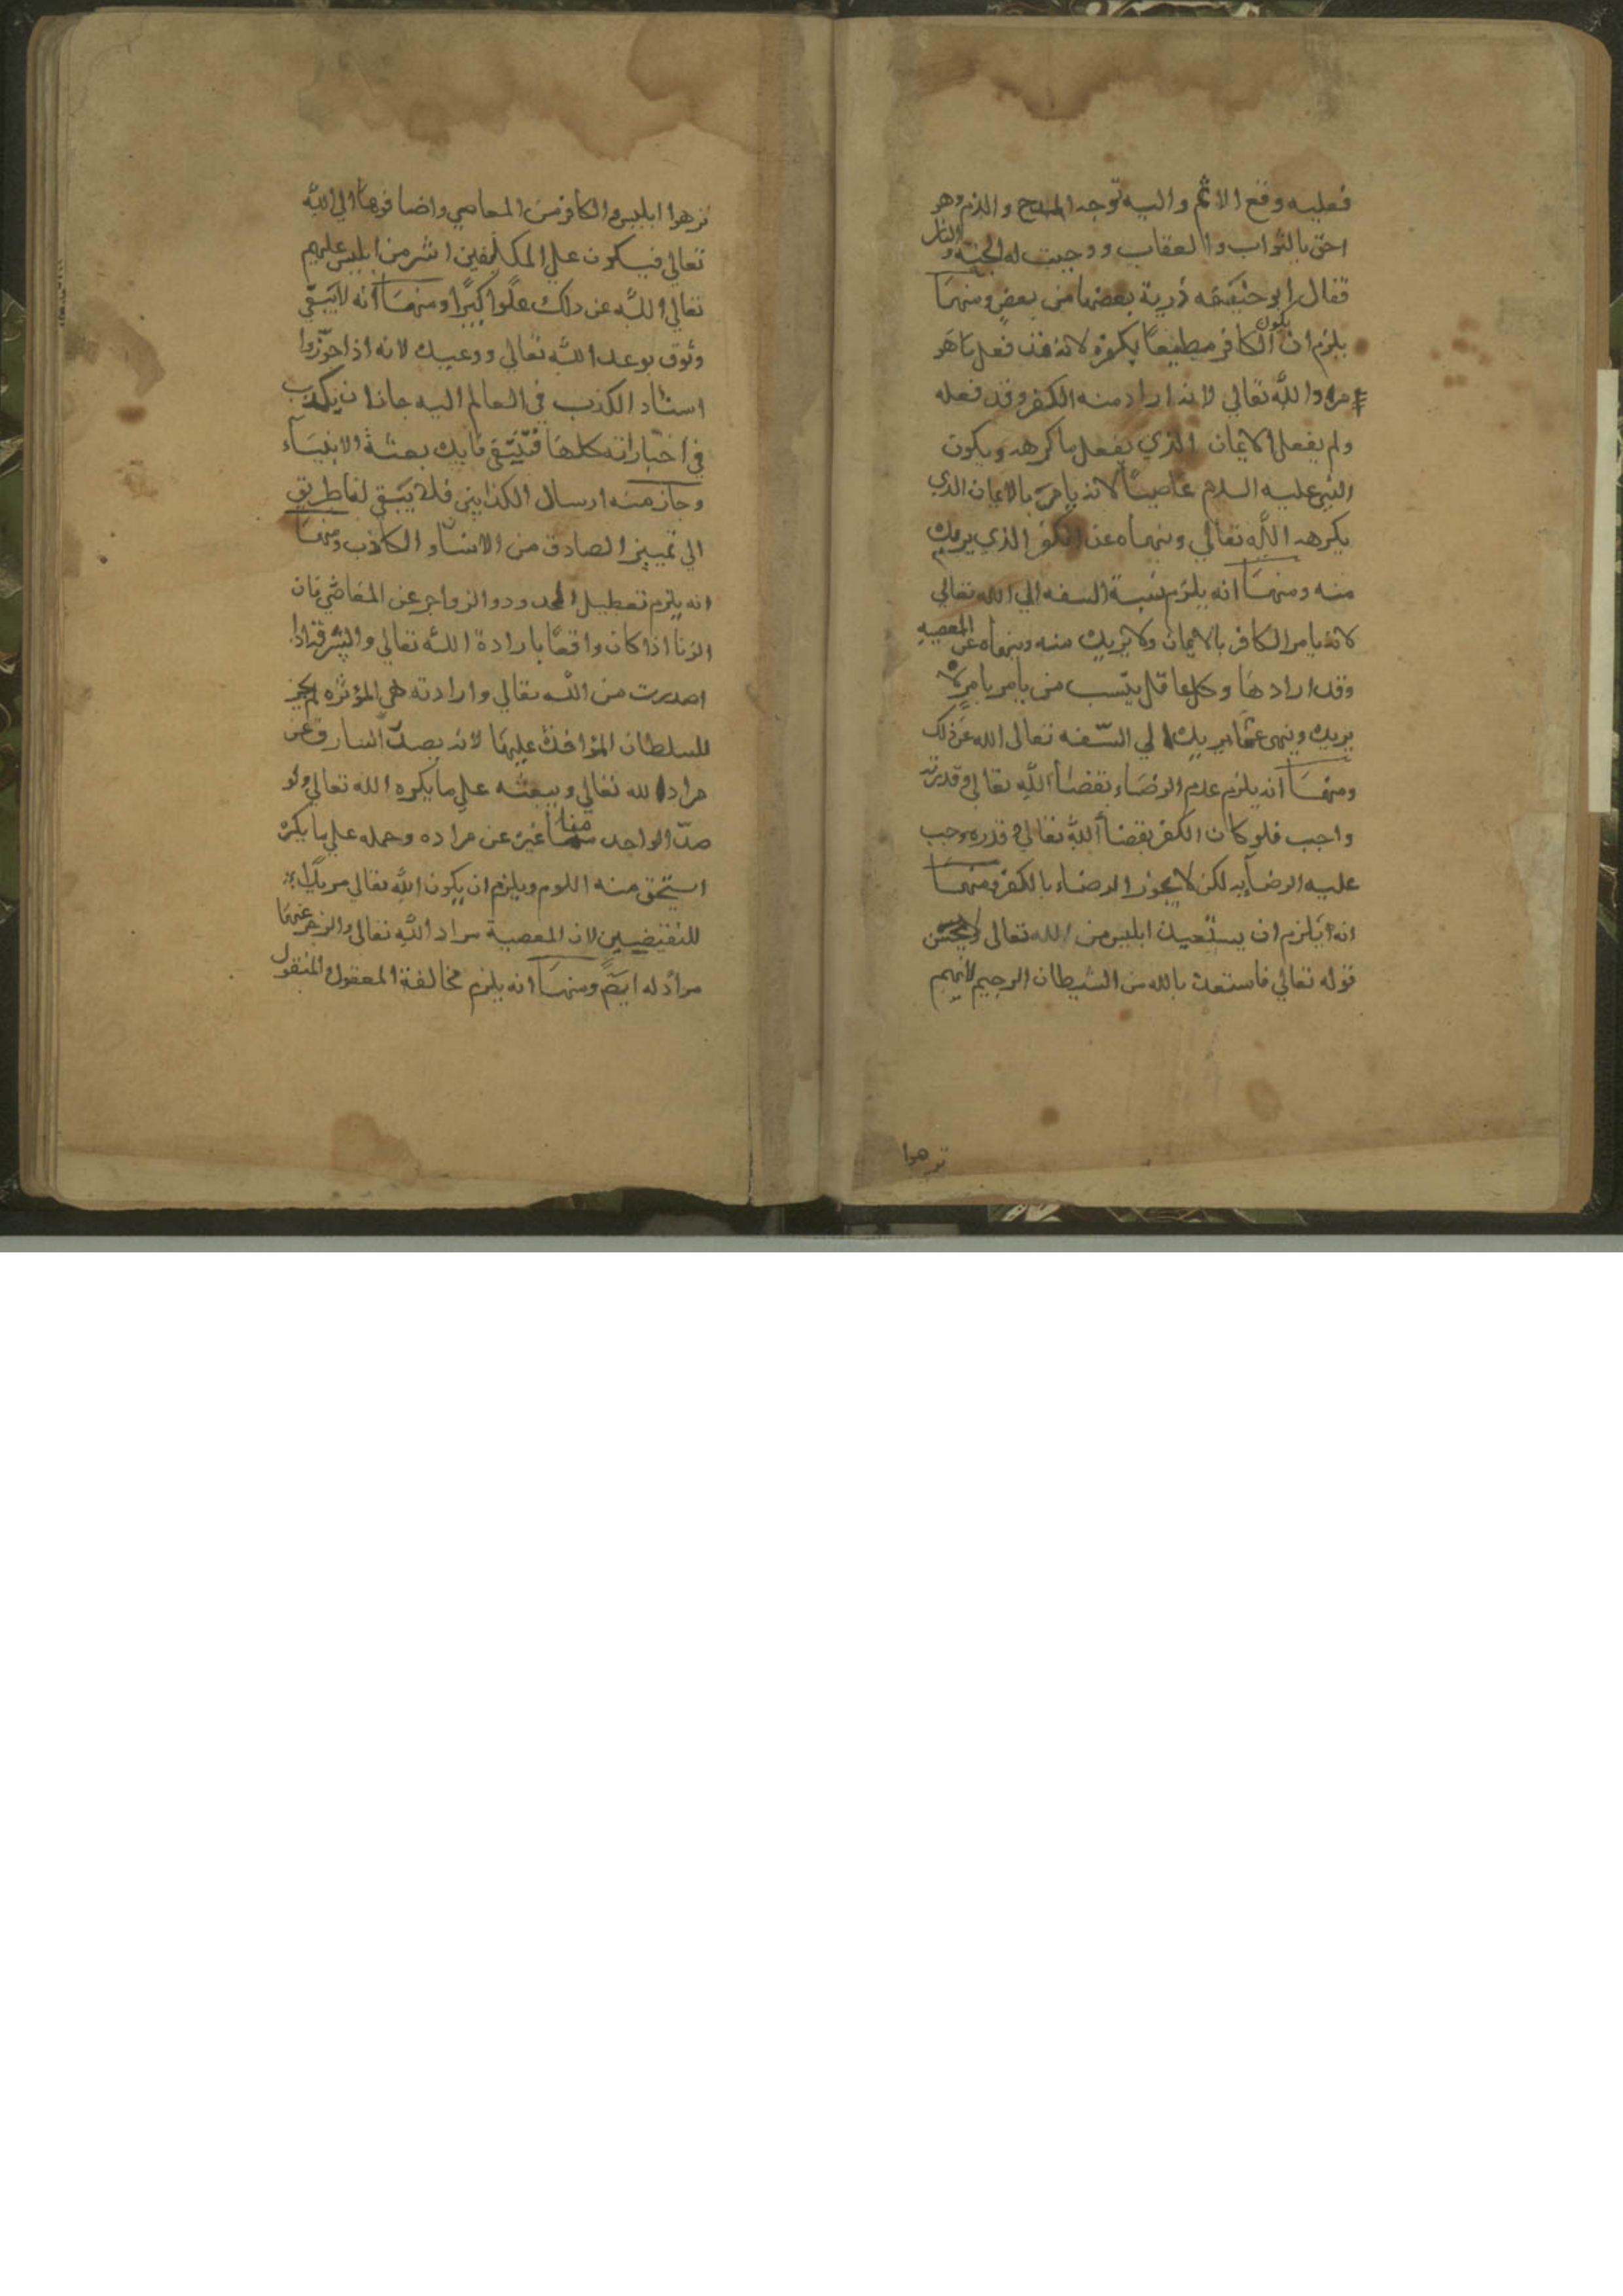 فعليه وقع الاثم واليه توجه المدح والذم وهو
احق بالثواب والعقاب ووجبت له الجنة والنار
فقال ابو حنيفه ذرية بعضها من بعض ومنها
يلزم ان يكون الكافر مطيعا بكفره لانه قد فعل ما هو
مراد الله تعالي لانه اراد منه الكفر وقد فعله
ولم يفعل الايمان الذي يفعل ما كرهه ويكون
النبي عليه السلام عاصيا لانه يامره بالايمان الذي
يكرهه الله تعالي وينهاه عن الكفر الذي يريده
منه ومنها انه يلزم نسبة السفه الي الله تعالي
لانه يامر الكافر بالايمان ولا يريده منه وينهاه عن المعصيه
وقد ارادها وكل عاقل ينسب من يامر بامر لا
يريده وينهى عما يريده الي السّفه تعالى الله عن ذلك
ومنها انه يلزم عدم الرضاء بقضاء الله تعالى وقدرته
واجب فلو كان الكفر بقضاء الله تعالي وقدره وجب
عليه الرضاء به لكن لا يجوز الرضاء بالكفر ومنها
انه يلزم ان يستعيذ ابليس من الله تعالى ولا يحسن
قوله تعالي فاستعذ بالله من الشيطان الرجيم لانهم
نزهوا
نزهوا ابليس والكافر من المعاصي واضافوها الي الله
تعالي فيكون علي المكلفين اشر من ابليس عليهم
تعالي الله عن ذلك علوا كبيرا ومنها انه لا يبقي
وثوق بوعد الله تعالي ووعيده لانه اذا جوّزوا
اسناد الكذب في العالم اليه جاز ان يكذب
في اخباراته كلها فتنتفي فايدة بعثة الانبيآء
وجاز منه ارسال الكذابين فلا يبقي لنا طريق
الي تمييز الصادق من الانبياء والكاذب ومنها
انه يلزم تعطيل الحدود والزواجر عن المعاصي فان
الزنا اذا كان واقعًا بارادة الله تعالي والسرقة اذا
اصدرت من الله تعالي وارادته هي المؤثره لم يجز
للسلطان المؤاخذة عليها لانه يصدّ السارق عن
مراد الله تعالي ويبعثه علي ما يكره الله تعالي ولو
صدّ الواحد منا غيره عن مراده وحمله علي ما يكره
استحق منه اللوم ويلزم ان يكون الله تعالي مريدًا
للنقيضين لان المعصية مراد الله تعالى والزجر عنها
مراد له ايضً ومنها انه يلزم مخالفة المعقول المنقول